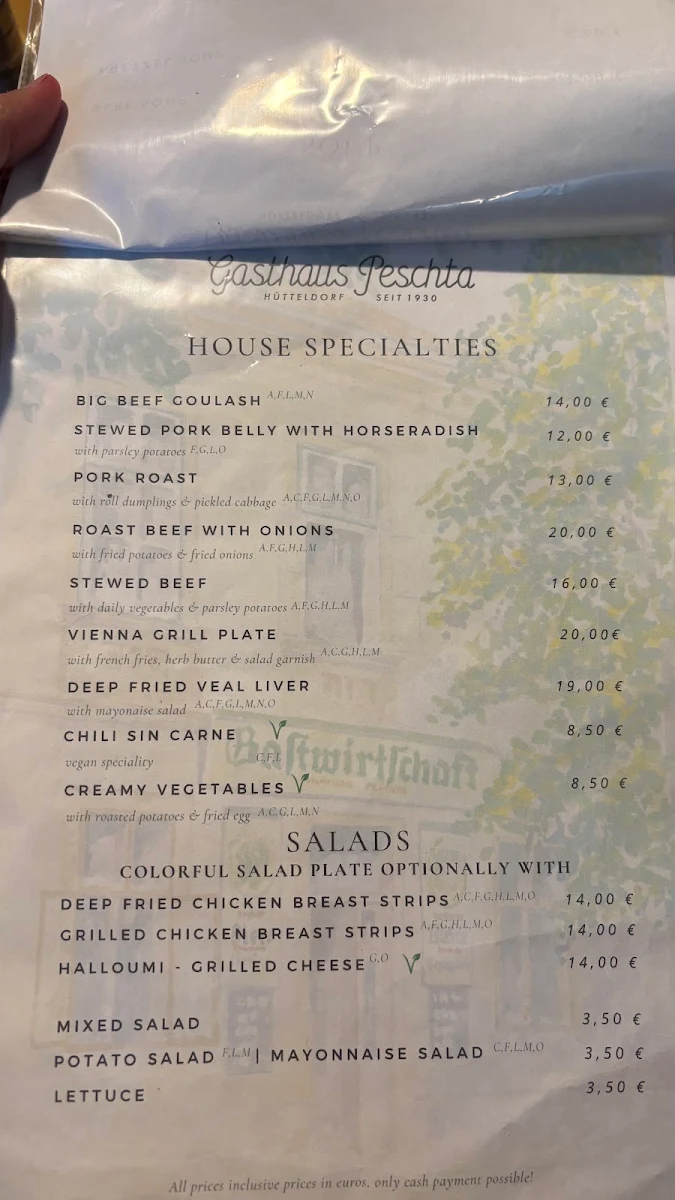 Gasthaus Peschta
HÜTTELDORF SEIT 1930
HOUSE SPECIALTIES
BIG BEEF GOULASH A,F,L,M,N 14,00 €
STEWED PORK BELLY WITH HORSERADISH 12,00 €
with parsley potatoes F,G,L,O
PORK ROAST 13,00 €
with roll dumplings & pickled cabbage A,C,F,G,L,M,N,O
ROAST BEEF WITH ONIONS 20,00 €
with fried potatoes & fried onions A,F,G,H,L,M
STEWED BEEF 16,00 €
with daily vegetables & parsley potatoes A,F,G,H,L,M
VIENNA GRILL PLATE 20,00€
with french fries, herb butter & salad garnish A,C,G,H,L,M
DEEP FRIED VEAL LIVER 19,00 €
with mayonaise salad A,C,F,G,L,M,N,O
CHILI SIN CARNE 8,50 €
vegan speciality C,F,L
Gastwirtschaft
CREAMY VEGETABLES 8,50 €
with roasted potatoes & fried egg A,C,G,L,M,N
SALADS
COLORFUL SALAD PLATE OPTIONALLY WITH
DEEP FRIED CHICKEN BREAST STRIPS A,C,F,G,H,L,M,O 14,00 €
GRILLED CHICKEN BREAST STRIPS A,F,G,H,L,M,O 14,00 €
HALLOUMI - GRILLED CHEESE G,O 14,00 €
MIXED SALAD 3,50 €
POTATO SALAD F,L,M | MAYONNAISE SALAD C,F,L,M,O 3,50 €
LETTUCE 3,50 €
All prices inclusive prices in euros. only cash payment possible!